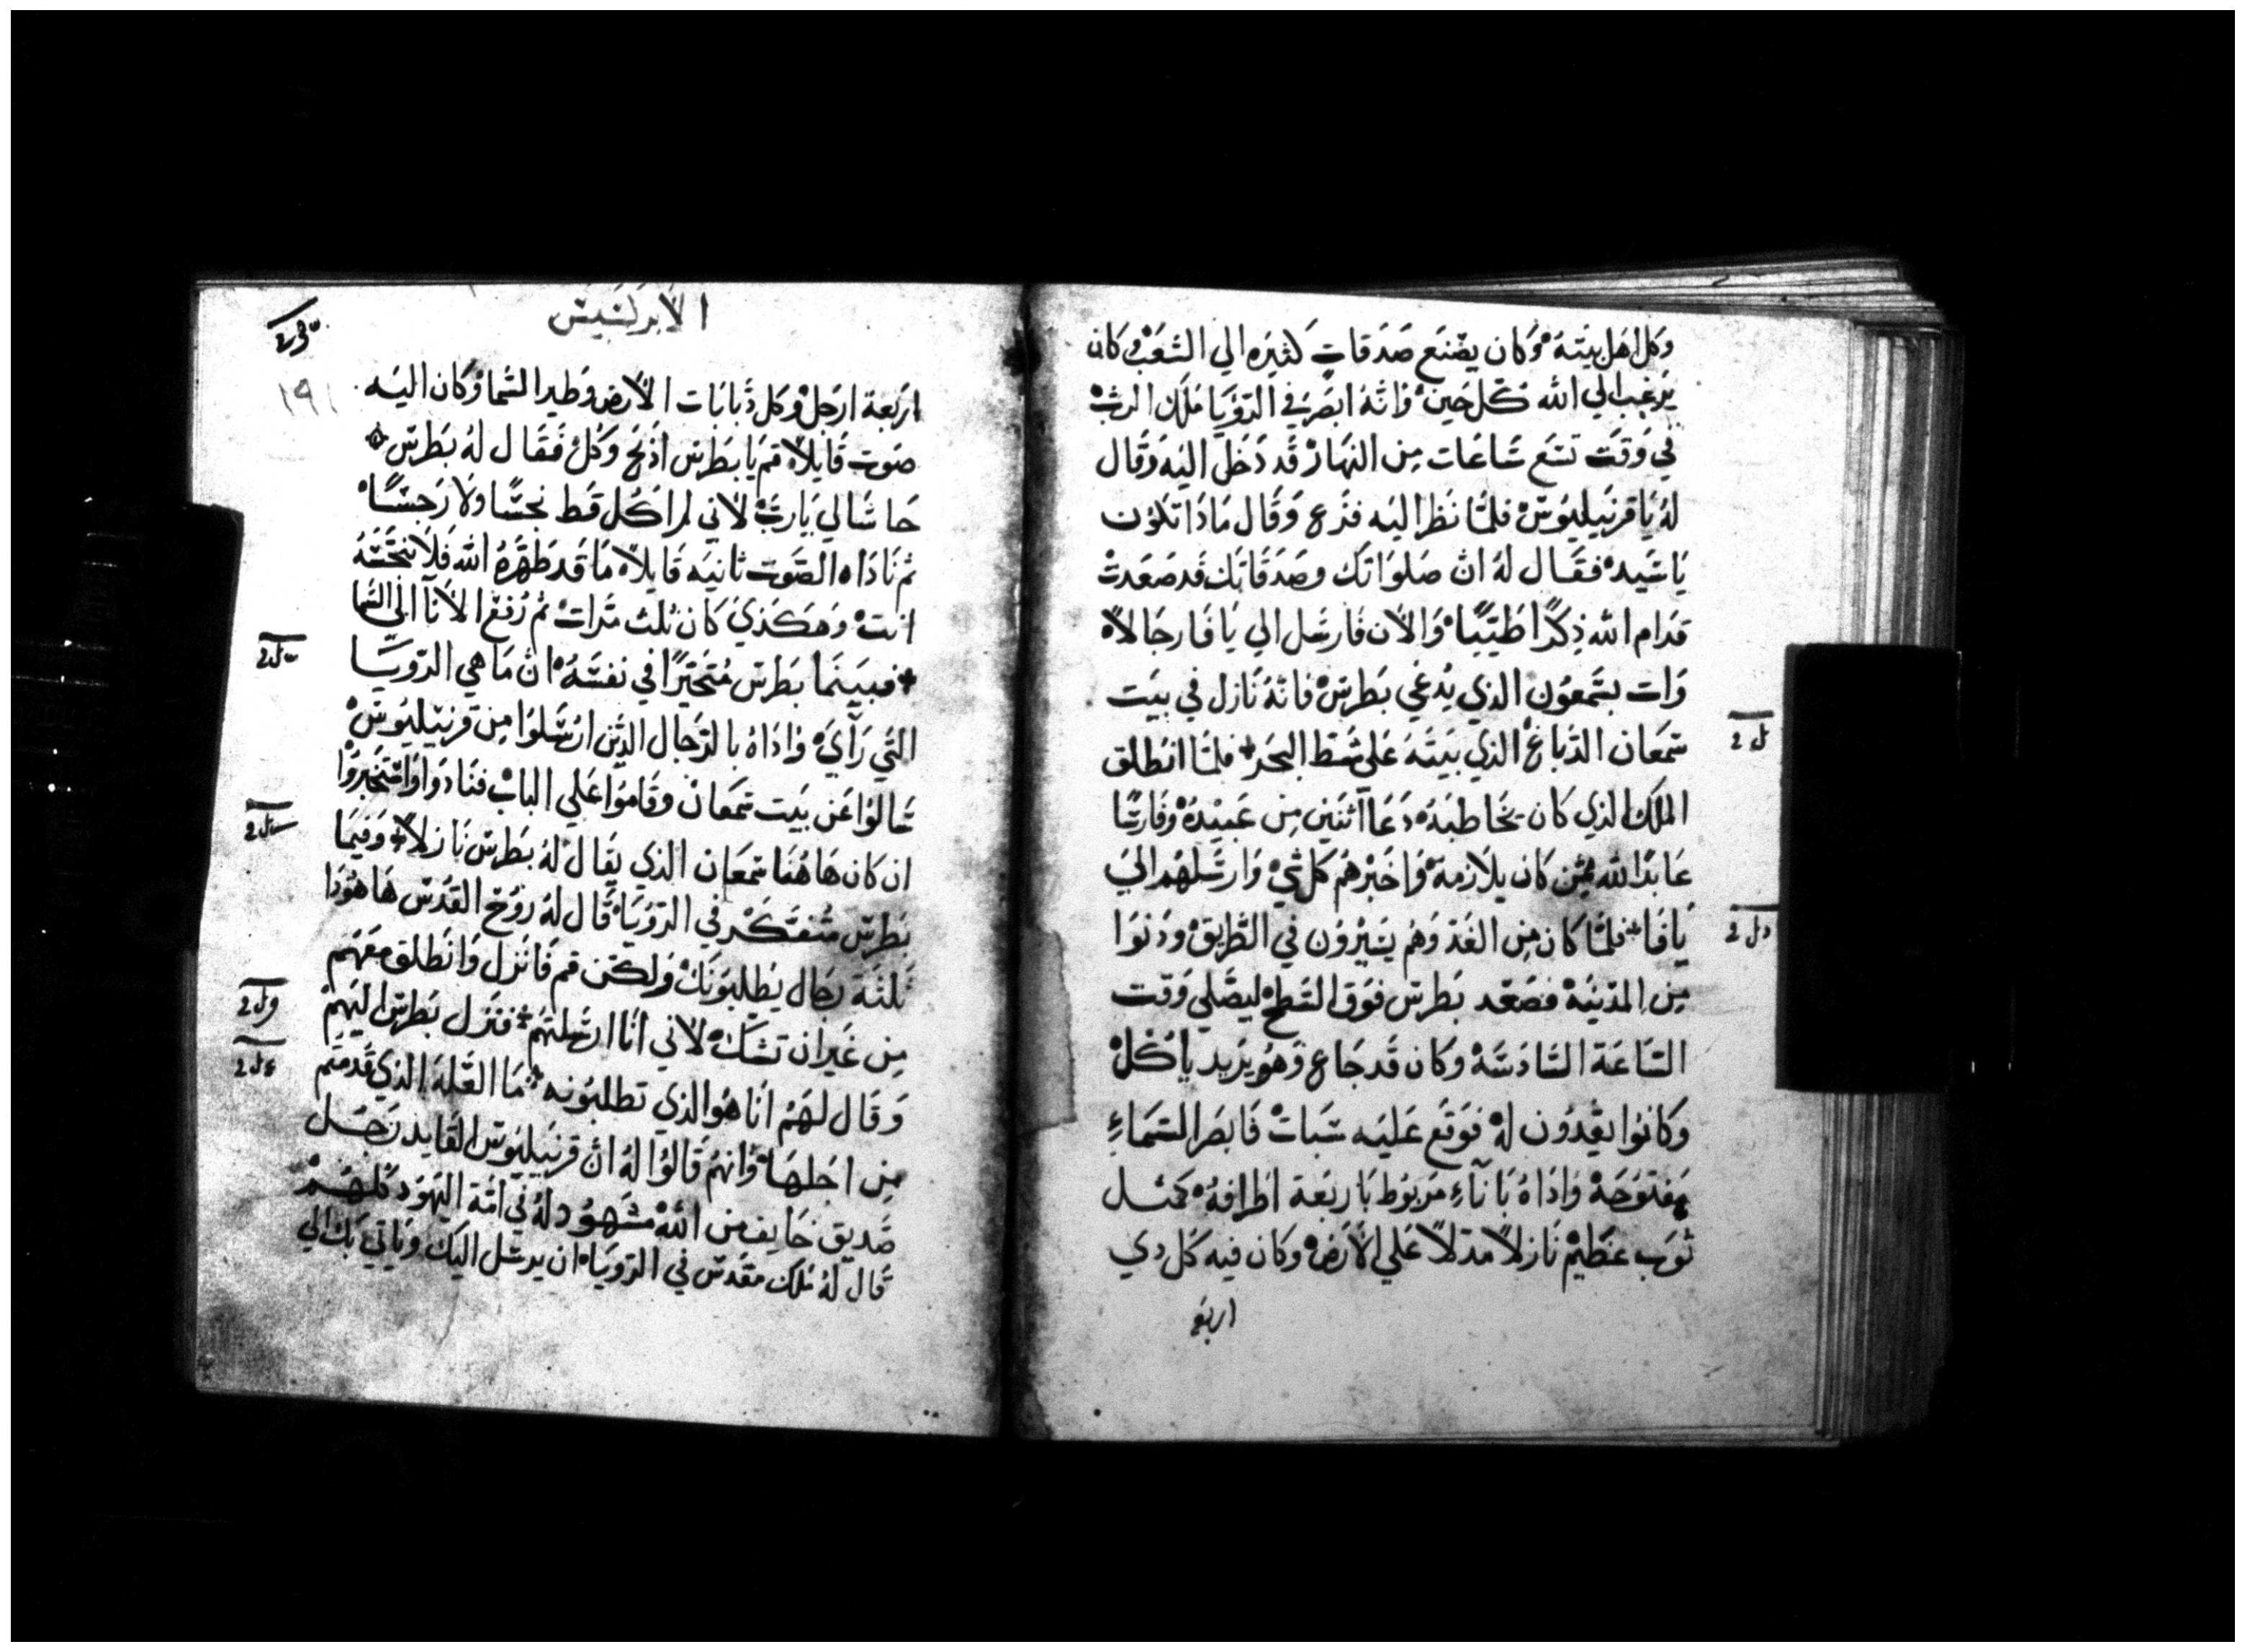 وكل اهل بيته وكان يصنع صدقات كثيره الي الشعب وكان
يرغب الي الله كل حين وانه ابصر في الرويا ملاك الرب
في وقت تسع ساعات من النهار قد دخل اليه وقال
له يا قرنيليوس فلما نظر اليه فزع وقال ماذا تكون
يا سيد فقال له ان صلواتك وصدقاتك قد صعدت
قدام الله ذكرًا طيبًا والان فارسل الي يافا رجالاً
وات بشمعون الذي يدعي بطرس فانه نازل في بيت
سمعان الدباغ الذي بيته علي شط البحر فلما انطلق
الملك الذي كان يخاطبه دعا اثنين من عبيده وفارسًا
عابدًا لله ممن كان يلازمه واخبرهم كل شي وارسلهم الي
يافا فلما كان من الغد وهم يسيرون في الطريق ودنوا
من المدينه فصعد بطرس فوق السطح ليصلي وقت
الساعة السادسة وكان قد جاع وهو يريد ياكل
وكانوا يعدون له فوقع عليه سبات فابصر السماء
مفتوحة واذا باناء مربوط باربعة اطرافه كمثل
ثوب عظيم نازلاً مدلاً علي الارض وكان فيه كل دي
اربع
الابركسيس
١٩١
اربعة ارجل وكل دبابات الارض وطير السما وكان اليه
صوت قايلاً قم يا بطرس اذبح وكل فقال له بطرس
حاشا لي يا رب لاني لم اكل قط نجسًا ولا رجسًا
ثم ناداه الصوت ثانيه قايلاً ما قد طهره الله فلا تنجسه
انت وهكذي كان ثلث مرات ثم رفع الانا الي السما
فبينما بطرس متحيرًا في نفسه ان ما هي الرويا
التي راي واذا بالرجال الدين ارسلوا من قرنيليوس
سالوا عن بيت سمعان وقاموا علي الباب فنادوا واستخبروا
ان كان هاهنا سمعان الذي يقال له بطرس نازلاً وفيما
بطرس متفكر في الرويا قال له روح القدس ها هوذا
ثلثة رجال يطلبونك ولكن قم فانزل وانطلق معهم
من غير ان تشك لاني انا ارسلتهم فنزل بطرس اليهم
وقال لهم انا هو الذي تطلبونه ما العلة الذي قدمتم
من اجلها وانهم قالوا له ان قرنيليوس القايد رجل
صديق خايف من الله مشهود له في امة اليهود كلهم
قال له ملاك مقدس في الرويا ان يرسل اليك وياتي بك الي